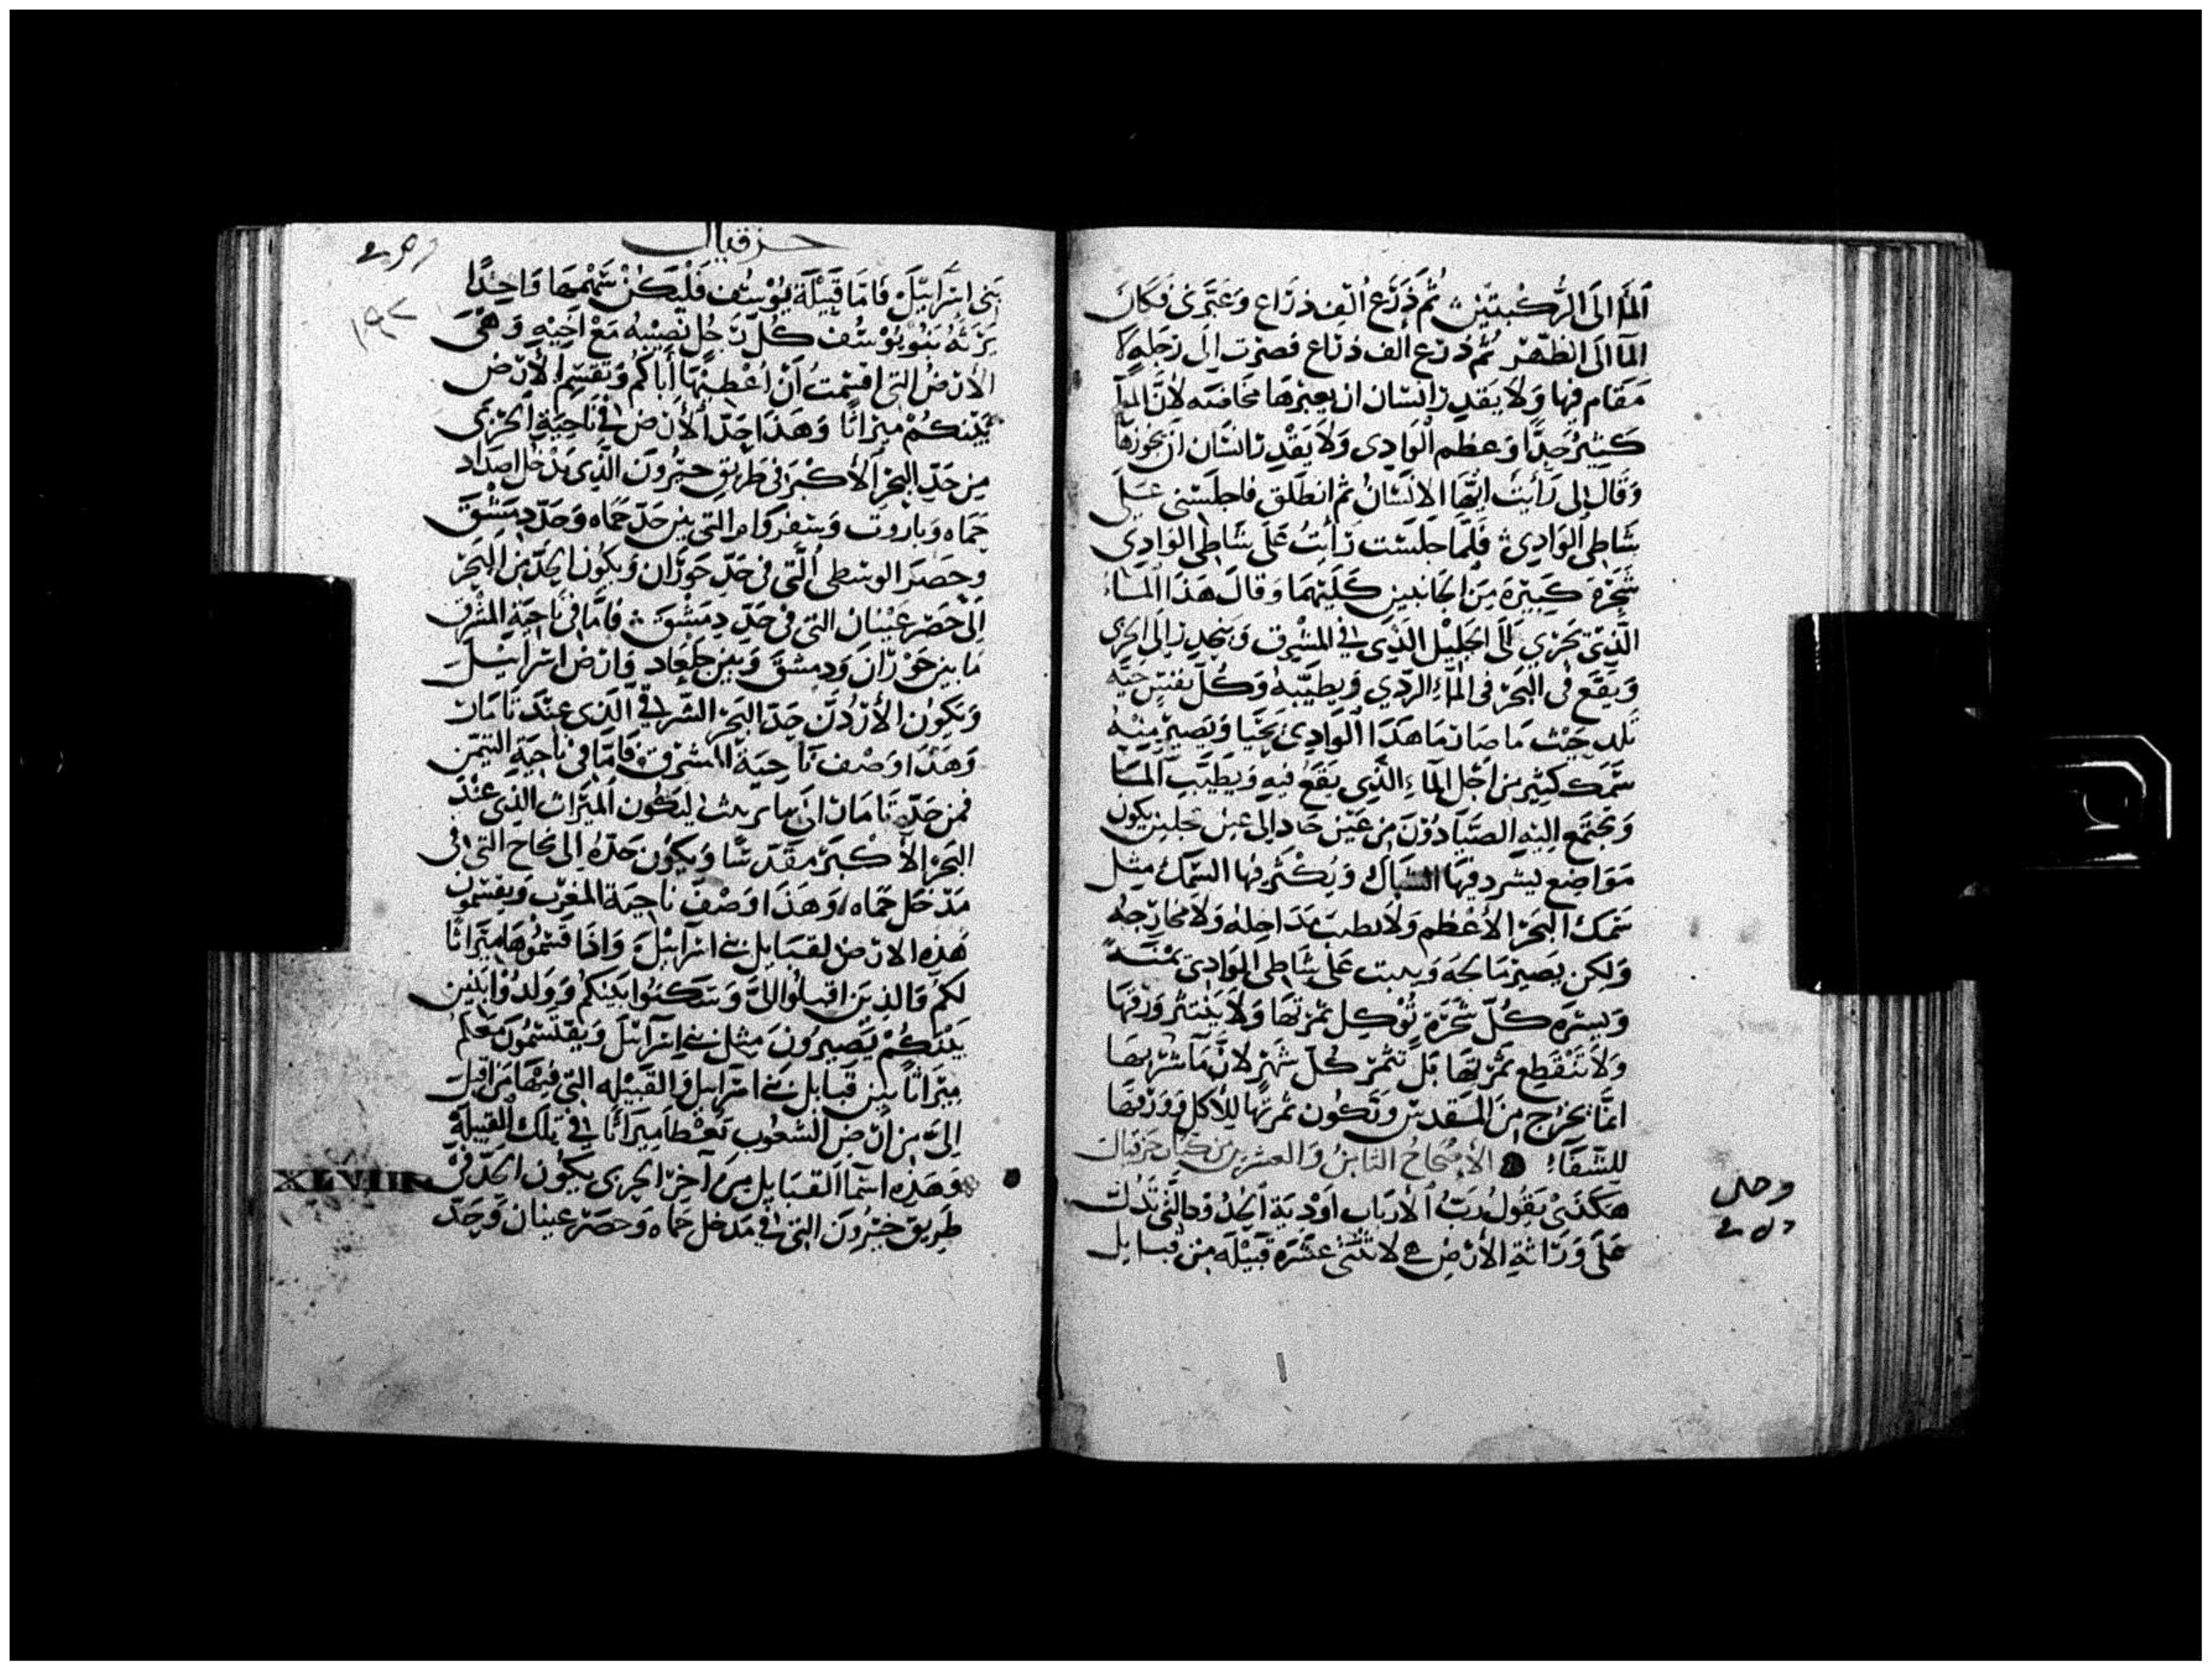 المآ الى الركبتين ثم ذرع الف ذراع وعبرنى فكان
المآ الى الظهر ثم ذرع الف ذراع فصرت الى رجله لا
مقام فيها ولا يقدر انسان ان يعبرها مخاضه لان المآ
كثير جدا وعظم الوادى ولا يقدر انسان ان يجوزها
وقال لى رأيت ايها الانسان ثم انطلق فاجلسنى على
شاطى الوادى فلما جلست رأيت على شاطى الوادى
شجرة كبيرة من الجانبين كليهما وقال هذا الماء
الذى يجرى الى الجليل الذى فى المشرق وينحدر الى الجرى
ويقع فى البحر فى الماء الردي ويطيبه وكل نفس حيه
تلد حيث ما صار ما هذا الوادى يحيا ويصير فيه
سمك كثير من اجل الماء الذى يقع فيه ويطيب الما
ويجتمع اليه الصيادون من عين جاد الى عين تجلين يكون
مواضع ليشرد فيها الشباك ويكثر فيها السمك مثل
سمك البحر الأعظم ولا يطيب مداخله ولا مخارجه
ولكن يصير مالحه وينبت على شاطى الوادى يمنه
ويسره كل شجرة توكل ثمرتها ولا ينتثر ورقها
ولا تنقطع ثمرتها بل تثمر كل شهر لان مآ شربها
انما يخرج من المقدس وتكون ثمرتها للأكل وورقها
للشفاء الأصحاح الثامن والعشرين من كتاب حزقيال
هكذى يقول رب الأرباب اودية الحدود التى تدلت
على وراثة الأرض لاثنتى عشرة قبيلة من قبايل
حزقيال
بنى اسرائيل فاما قبيلة يوسف فليكن سهمها واحدا
يرثه بنو يوسف كل رجل نصيبه مع اخيه وهى
الأرض التى اقسمت ان اعطيها أباكم وتقسم الأرض
بينكم ميراثا وهذا حد الأرض فى ناحية الجرى
من حد البحر الأكبر فى طريق حبرون الذى يدخل اصداد
حماه وباروت وسفروام التى بين حد حماه وحد دمشق
وحصر الوسطى التى فى حد حوران ويكون الحد من البحر
الى حصر عينان التى فى حد دمشق فاما فى ناحية المشرق
ما بين حوران ودمشق وبين جلعاد وارض اسراييل
ويكون الأردن حد البحر الشرقى الذى عند تامان
وهذا وصف ناحية المشرق فاما فى ناحية التيمن
فمن حد تامان الى ماريث ليكون الميراث الذى عند
البحر الأكبر مقدسا ويكون حده الى نحاح التى فى
مدخل حماه وهذا وصف ناحية المغرب ويقسمون
هذه الارض لقبايل بنى اسراييل واذا قسموها ميراثا
لكم والذين اقبلوا الى وسكنوا بينكم وولدوا بنين
بينكم يصيرون مثل بنى اسراييل ويقتسمون معكم
ميراثا بين قبايل بنى اسراييل والقبيله التى فيها من اقبل
الى من ارض الشعوب تعطا ميراثا فى تلك القبيلة
وهذه اسما القبايل من آخر الجرى يكون الحد فى
XLVIII
طريق حبرون التى فى مدخل حماه وحصر عينان وحد